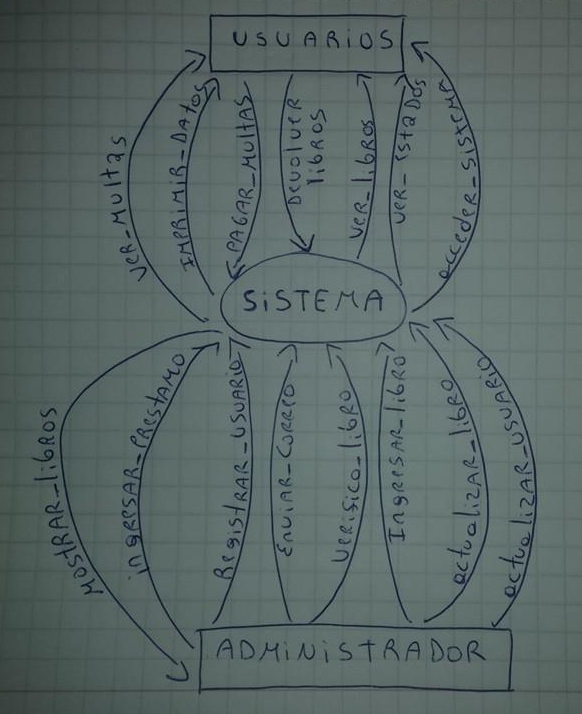 USUARIOS
VER_MULTAS
IMPRIMIR_DATOS
PAGAR_MULTAS
DEVOLVER
LIBROS
VER_LIBROS
VER_ESTADOS
acceder_sistema
SISTEMA
MOSTRAR_LIBROS
INGRESAR_PRESTAMO
REGISTRAR_USUARIO
ENVIAR_CORREO
VERIFICO_LIBRO
INGRESAR_LIBRO
actualizar_libro
actualizar_usuario
ADMINISTRADOR